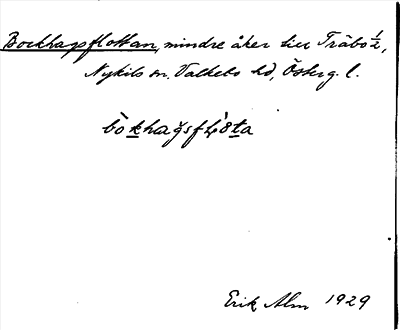 Bockhagsflottan, mindre åker tier Träbo 1/2,
Nykils sn. Valkebo hd, Österg. l.
Erik Alm 1929